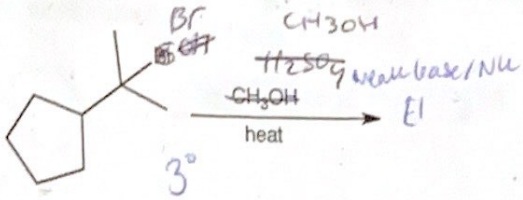 Br
OH
CH3OH
H2SO4
weak base/Nu
CH3OH
E1
heat
3°